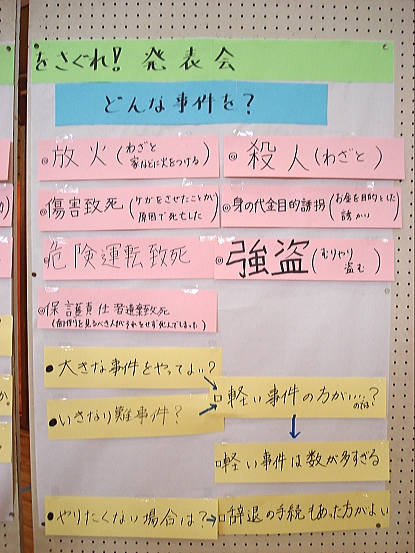 をさぐれ！発表会
どんな事件を？
◎放火(わざと
家などに火をつける)
◎殺人(わざと)
◎傷害致死(ケガをさせたことが
原因で死亡した)
◎身の代金目的誘拐(お金を目的とした
誘かい)
危険運転致死
◎強盗(むりやり
盗む)
◎保護責任者遺棄致死
(面倒を見るべき人がそれをせず死んでしまった)
●大きな事件をやってよい？
●いきなり難事件？
□軽い事件の方が…?
のでは
□軽い事件は数が多すぎる
●やりたくない場合は？
□辞退の手続もあった方がよい